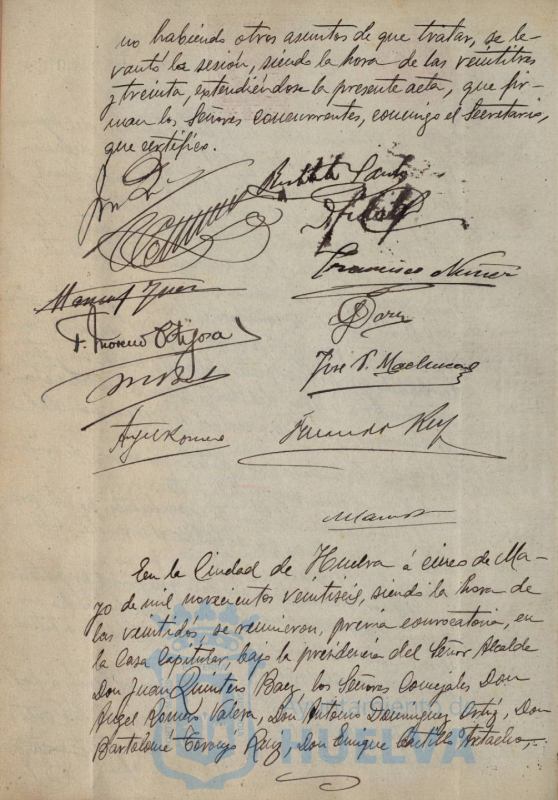 no habiendo otros asuntos de que tratar, se le-
vantó la sesión, siendo la hora de las veintitres
y treinta, extendiéndose la presente acta, que fir-
man los Señores concurrentes, conmigo el Secretario,
que certifico.
Francisco Nuñez
F. Moreno Ortijosa
José P. Machuca
Angel Romero
Fernando Rey
En la Ciudad de Huelva á cinco de Ma-
yo de mil novecientos veintiseis, siendo la hora de
las veintidós, se reunieron, previa convocatoria, en
la Casa Capitular, bajo la presidencia del Señor Alcalde
Don Juan Quintero Baez, los Señores Concejales Don
Angel Romero Valera, Don Antonio Dominguez Ortiz, Don
Bartolomé Ruiz, Don Enrique Castillo
Ayuntamiento de
HUELVA